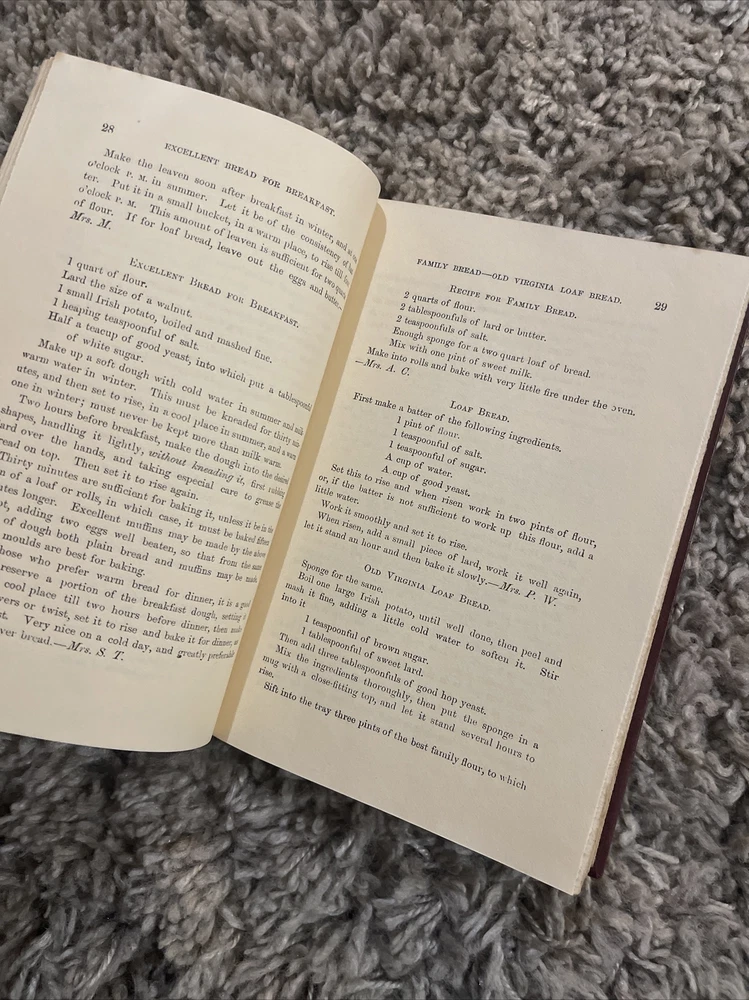 28
EXCELLENT BREAD FOR BREAKFAST.
Make the leaven soon after breakfast in winter, and at
o'clock P. M. in summer. Let it be of the consistency of
ter. Put it in a small bucket, in a warm place, to rise till
o'clock P. M. This amount of leaven is sufficient for two
of flour. If for loaf bread, leave out the eggs and butter.—
Mrs. M.
EXCELLENT BREAD FOR BREAKFAST.
1 quart of flour.
Lard the size of a walnut.
1 small Irish potato, boiled and mashed fine.
1 heaping teaspoonful of salt.
Half a teacup of good yeast, into which put a tablespoonful
of white sugar.
Make up a soft dough with cold water in summer and milk
warm water in winter. This must be kneaded for thirty min-
utes, and then set to rise, in a cool place in summer, and a warm
one in winter; must never be kept more than milk warm.
Two hours before breakfast, make the dough into the desired
shapes, handling it lightly, without kneading it, first rubbing
ard over the hands, and taking especial care to grease the
read on top. Then set it to rise again.
Thirty minutes are sufficient for baking it, unless it be in the
n of a loaf or rolls, in which case, it must be baked fifteen
utes longer. Excellent muffins may be made by the above
pt, adding two eggs well beaten, so that from the same
of dough both plain bread and muffins may be made.
moulds are best for baking.
hose who prefer warm bread for dinner, it is a good
reserve a portion of the breakfast dough, setting it
cool place till two hours before dinner, then make
vers or twist, set it to rise and bake it for dinner, as
st. Very nice on a cold day, and greatly preferable
ver bread.—Mrs. S. T.
FAMILY BREAD—OLD VIRGINIA LOAF BREAD.
29
RECIPE FOR FAMILY BREAD.
2 quarts of flour.
2 tablespoonfuls of lard or butter.
2 teaspoonfuls of salt.
Enough sponge for a two quart loaf of bread.
Mix with one pint of sweet milk.
Make into rolls and bake with very little fire under the oven.
—Mrs. A. C.
LOAF BREAD.
First make a batter of the following ingredients.
1 pint of flour.
1 teaspoonful of salt.
1 teaspoonful of sugar.
A cup of water.
A cup of good yeast.
Set this to rise and when risen work in two pints of flour,
or, if the batter is not sufficient to work up this flour, add a
little water.
Work it smoothly and set it to rise.
When risen, add a small piece of lard, work it well again,
let it stand an hour and then bake it slowly.—Mrs. P. W.
OLD VIRGINIA LOAF BREAD.
Sponge for the same.
Boil one large Irish potato, until well done, then peel and
mash it fine, adding a little cold water to soften it. Stir
into it
1 teaspoonful of brown sugar.
1 tablespoonful of sweet lard.
Then add three tablespoonfuls of good hop yeast.
Mix the ingredients thoroughly, then put the sponge in a
mug with a close-fitting top, and let it stand several hours to
rise.
Sift into the tray three pints of the best family flour, to which